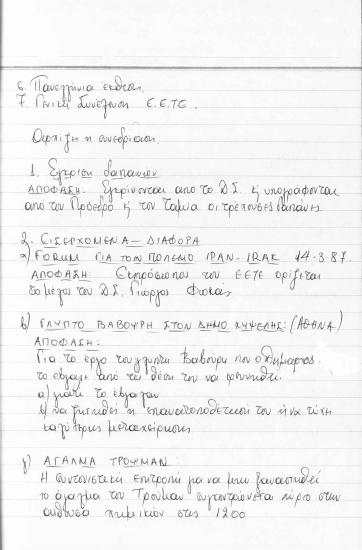 6. Πανελλήνια έκθεση.
7. Γενική Συνέλευση Ε.Ε.Τ.Ε.
Αρχίζει η συνεδρίαση.
1. Έγκριση δαπανών
ΑΠΟΦΑΣΗ: Εγκρίνονται από το Δ.Σ. ή υπογράφονται
από τον Πρόεδρο ή τον Ταμία οι τρέχουσες δαπάνες.
2. ΕΙΣΕΡΧΟΜΕΝΑ - ΔΙΑΦΟΡΑ
α) FORUM ΓΙΑ ΤΟΝ ΠΟΛΕΜΟ ΙΡΑΝ-ΙΡΑΚ 14-3-87.
ΑΠΟΦΑΣΗ: Εκπρόσωπος του ΕΕΤΕ ορίζεται
το μέλος του Δ.Σ. Γιώργος
β) ΓΛΥΠΤΟ ΒΑΒΟΥΡΗ ΣΤΟΝ ΔΗΜΟ ΚΥΨΕΛΗΣ: (ΑΘΗΝΑ)
ΑΠΟΦΑΣΗ:
Για το έργο του γλύπτη Βαβούρη που ο δήμαρχος
το έβγαλε από τη θέση του να
α) γιατί το έβγαλαν
β) να ζητηθεί η επανατοποθέτησή του ή να τύχει
καλύτερης μεταχείρησης.
γ) ΑΓΑΛΜΑ ΤΡΟΥΜΑΝ:
Η συντονιστική επιτροπή για να μην ξαναστηθεί
το άγαλμα του Τρούμαν συγκεντρώνεται αύριο στην
αίθουσα χημικών στις 12.00